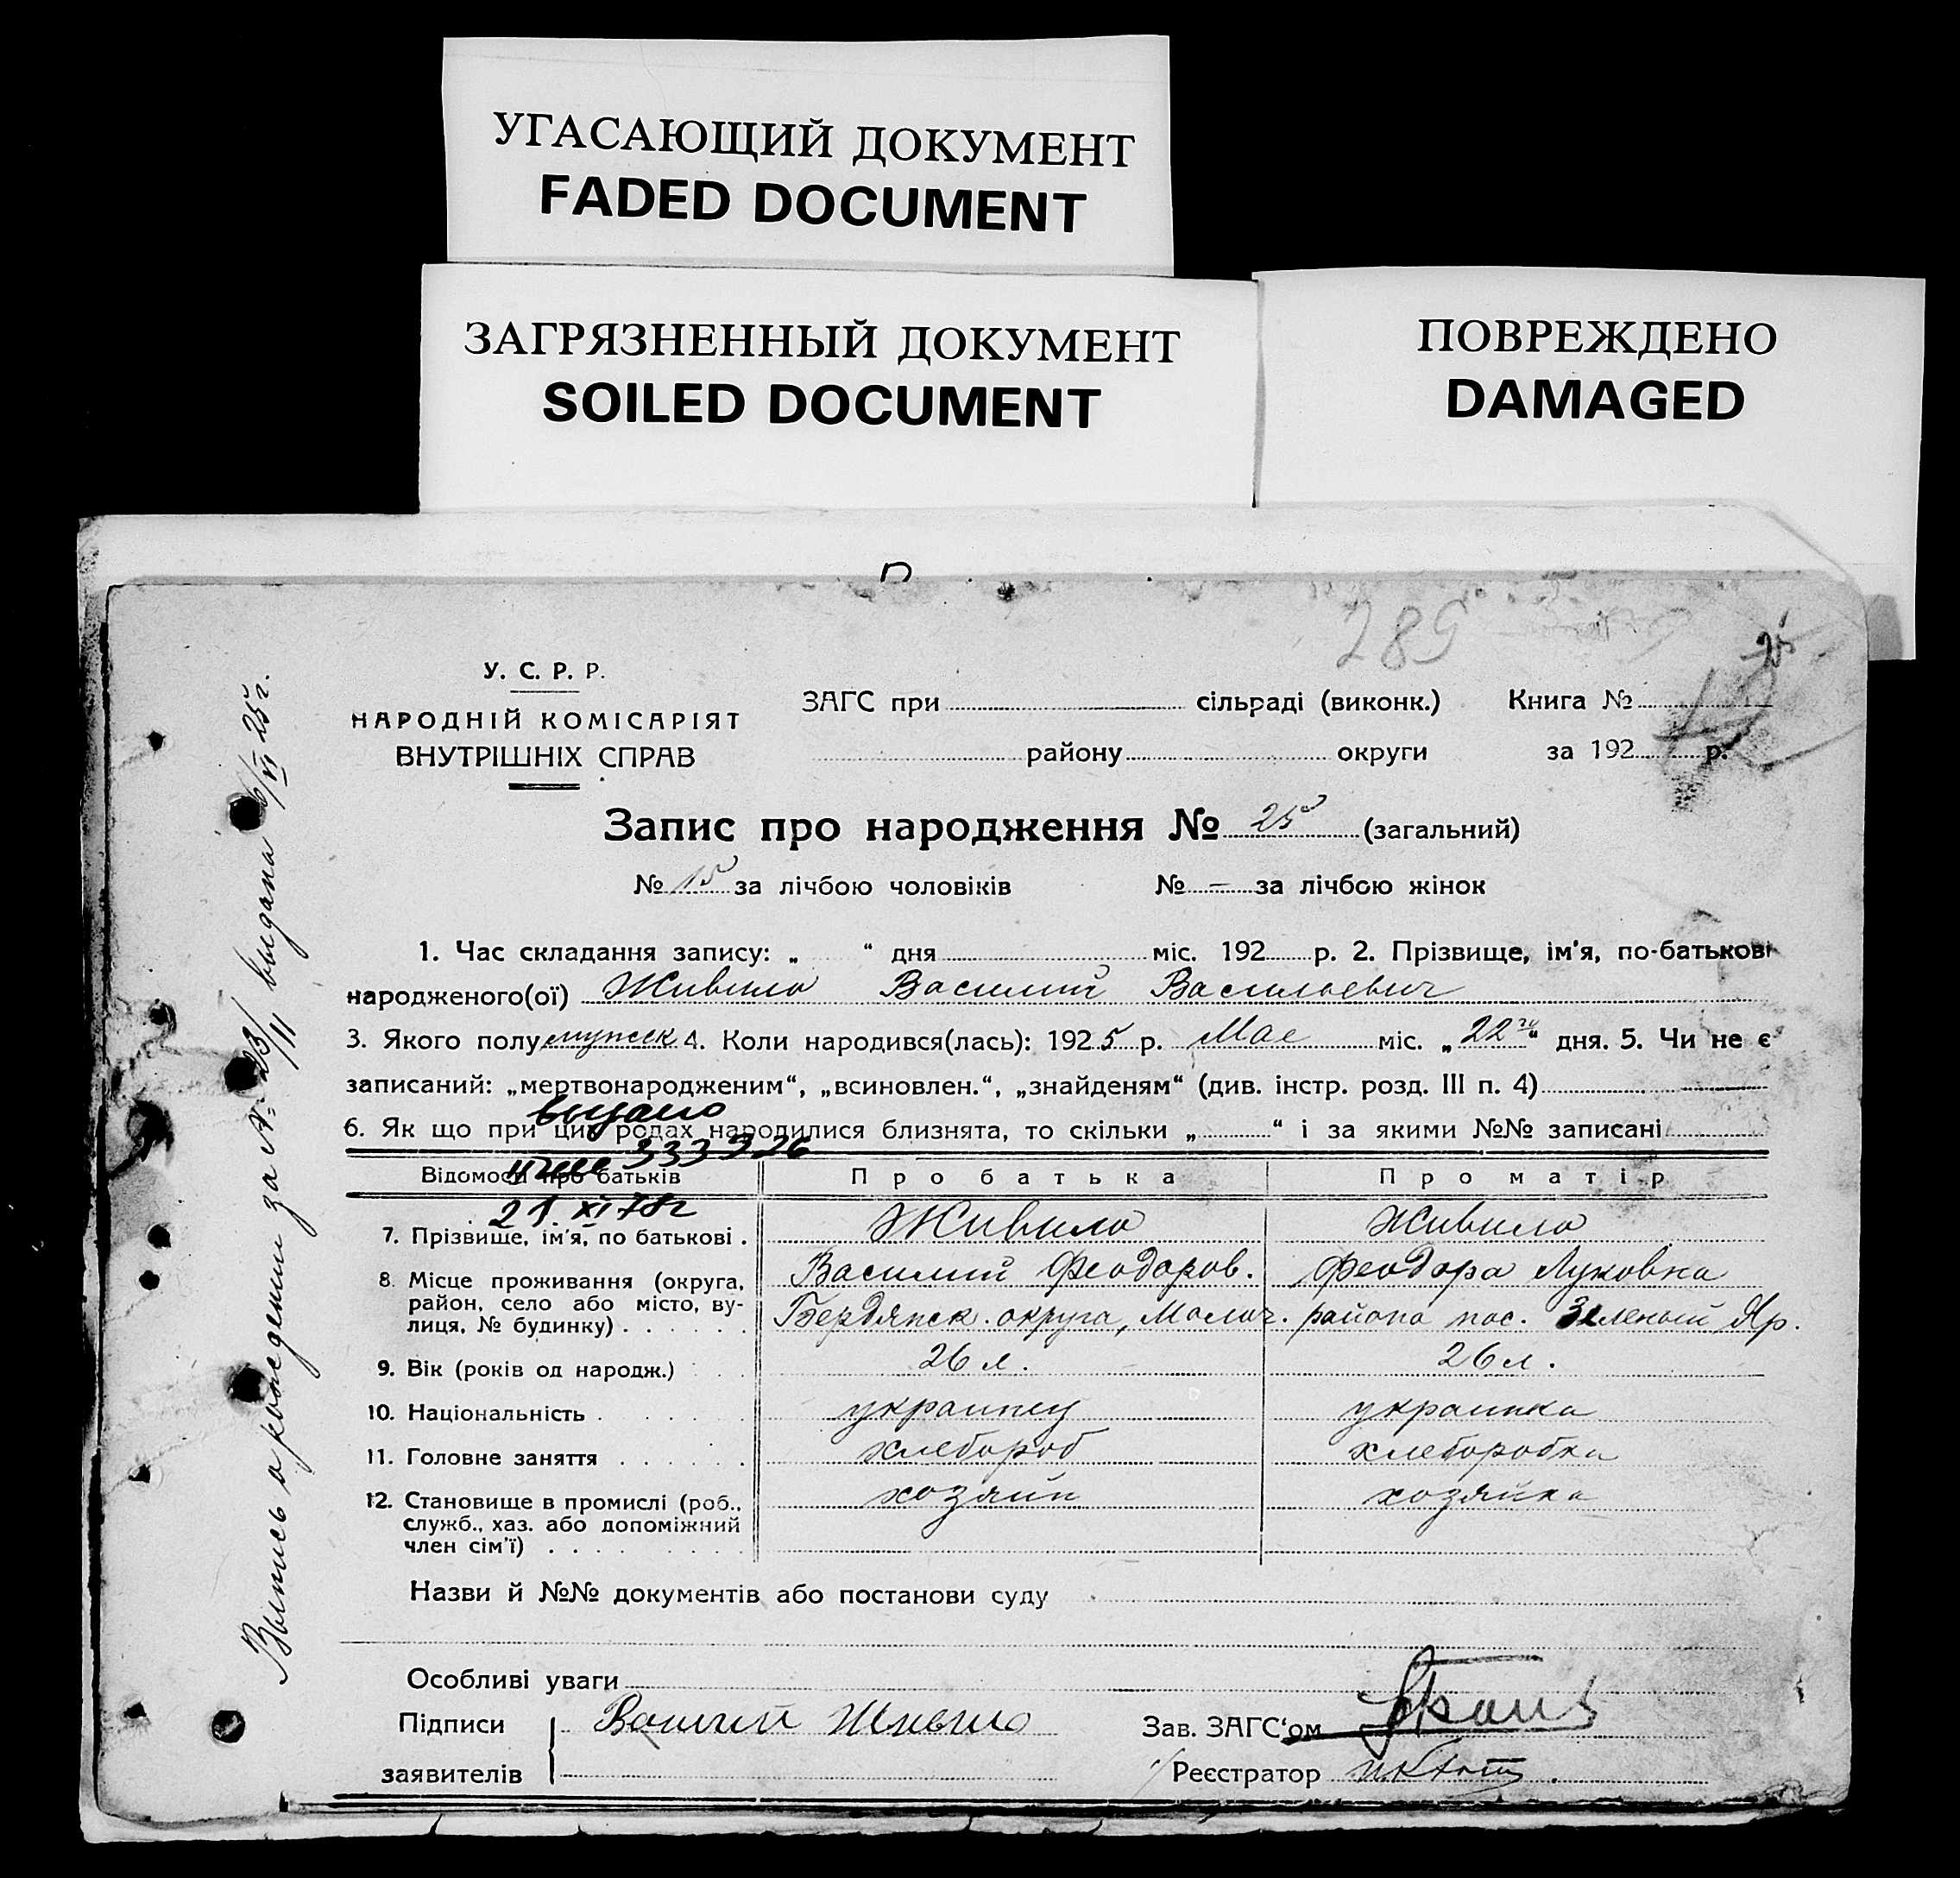 УГАСАЮЩИЙ ДОКУМЕНТ
FADED DOCUMENT
ЗАГРЯЗНЕННЫЙ ДОКУМЕНТ
SOILED DOCUMENT
ПОВРЕЖДЕНО
DAMAGED
289
25
У. С. Р. Р.
НАРОДНІЙ КОМІСАРІЯТ
ВНУТРІШНІХ СПРАВ
ЗАГС при сільраді (виконк.) Книга №
району округи за 192 р.
Запис про народження № 25 (загальний)
№ 15 за лічбою чоловіків № — за лічбою жінок
1. Час складання запису: „ “ дня міс. 192 р. 2. Прізвище, ім'я, по-батькові
народженого(ої) Живило Василий Васильевич
3. Якого полу мужск 4. Коли народився(лась): 1925 р. Мае міс. „22го“ дня. 5. Чи не є
записаний: „мертвонародженим“, „всиновлен.“, „знайденям“ (див. інстр. розд. III п. 4)
выдано
6. Як що при цих родах народилися близнята, то скільки „ “ і за якими №№ записані
333926
Відомости про батьків Про батька Про матір
21.XI 78г
7. Прізвище, ім'я, по батькові . Живило Живило
Василий Феодоров. Феодора Луковна
8. Місце проживання (округа, район, село або місто, вулиця, № будинку) . . . . . . Бердянск. округа, Молоч. района пос. Зеленый Яр.
9. Вік (років од народж.) 26 л. 26 л.
10. Національність . . . . . . украинец украинка
11. Головне заняття . . . . . . хлебороб хлеборобка
12. Становище в промислі (роб., служб., хаз. або допоміжний член сім'ї) . . . . . . хозяин хозяйка
Назви й №№ документів або постанови суду
Особливі уваги
Підписи Василий Живило Зав. ЗАГС‘ом
заявителів Реєстратор
Выпись о рождении за № 23/II выдана 6/VI 25 г.